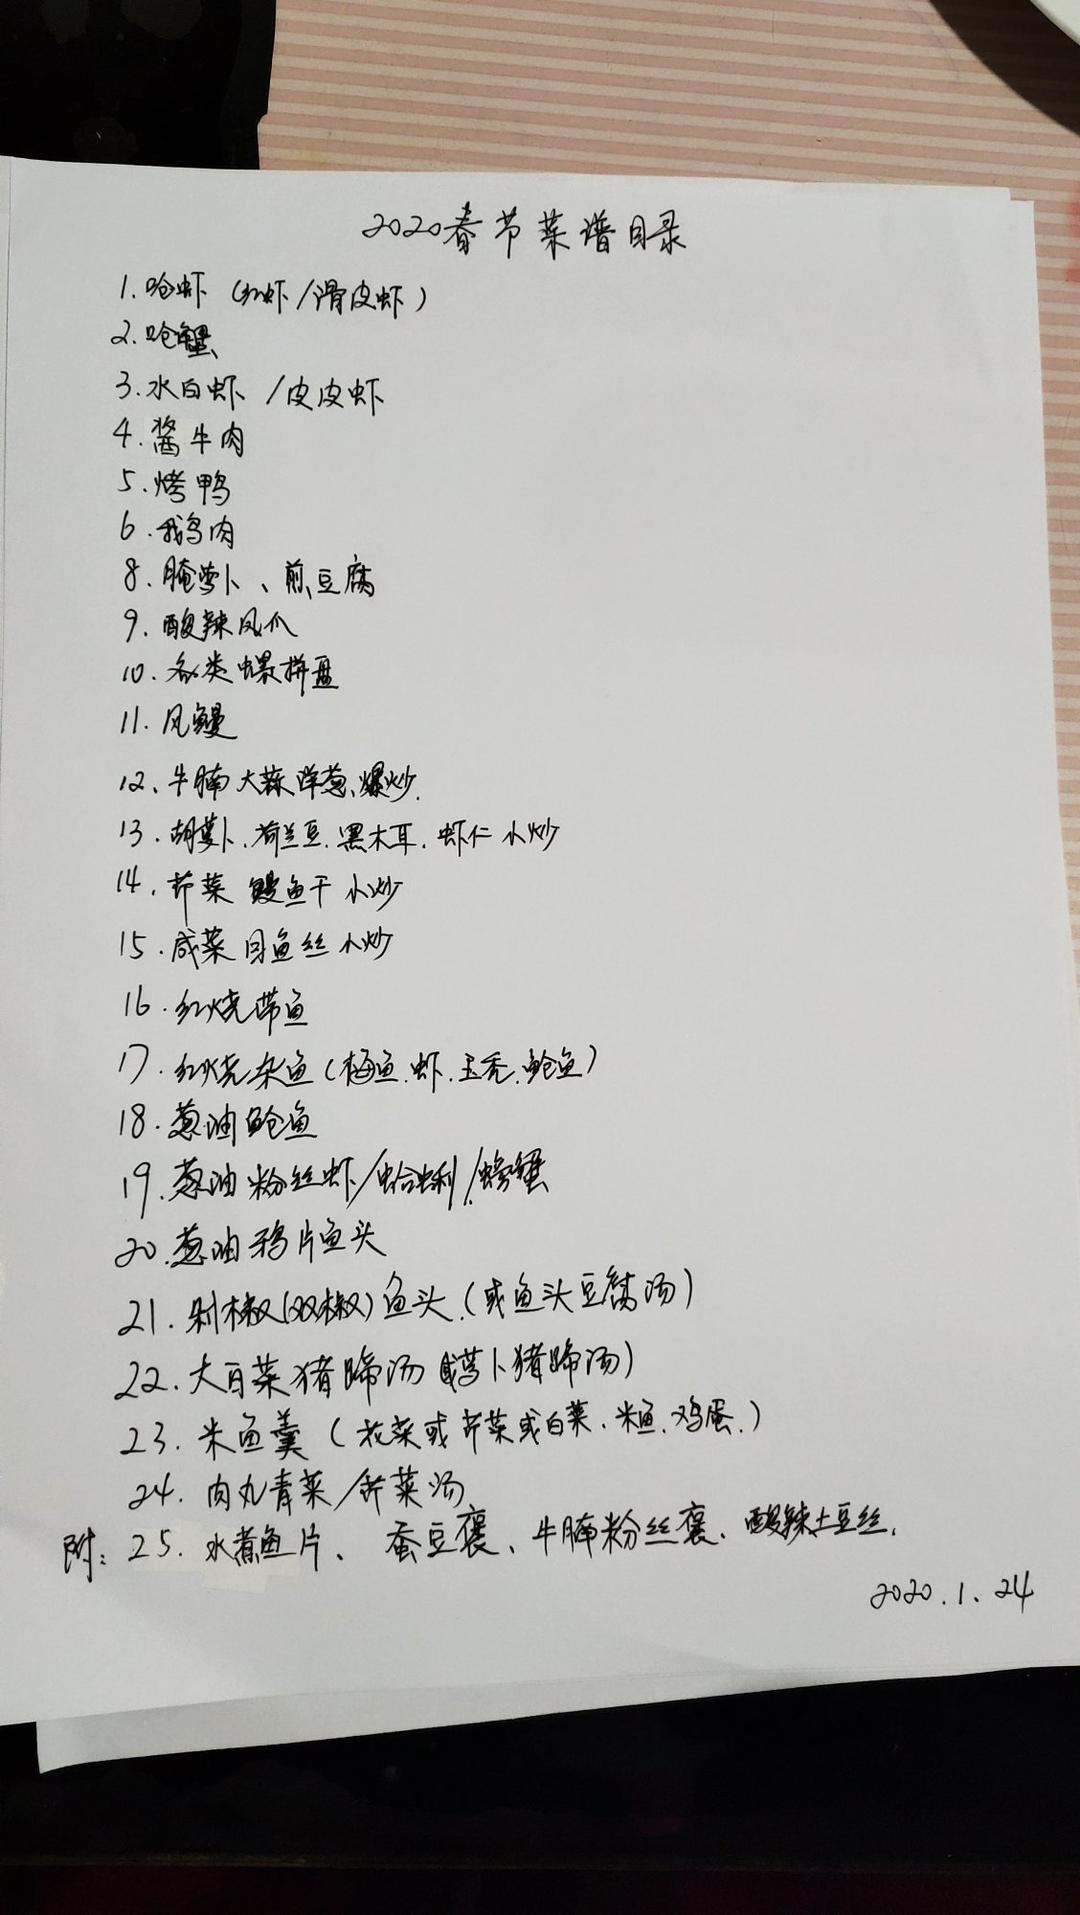 2020春节菜谱目录
1.呛虾（红虾/滑皮虾）
2.呛蟹
3.水白虾/皮皮虾
4.酱牛肉
5.烤鸭
6.鹅肉
8.腌萝卜、煎豆腐
9.酸辣凤爪
10.各类螺拼盘
11.风鳗
12、牛腩大蒜洋葱、爆炒.
13.胡萝卜.荷兰豆.黑木耳.虾仁小炒
14.芹菜 鳗鱼干小炒
15.咸菜目鱼丝小炒
16.红烧带鱼
17.红烧杂鱼（梅鱼.虾.玉秃.鲳鱼）
18.葱油鲳鱼
19.葱油粉丝虾/蛤蜊/螃蟹
20.葱油鸦片鱼头
21.剁椒(双椒)鱼头.(或鱼头豆腐汤)
22.大白菜猪蹄汤(或萝卜猪蹄汤)
23.米鱼羹（花菜或芹菜或白菜.米鱼.鸡蛋.）
24.肉丸青菜/芹菜汤
附：25.水煮鱼片、蚕豆裹、牛腩粉丝裹、酸辣土豆丝.
2020.1.24